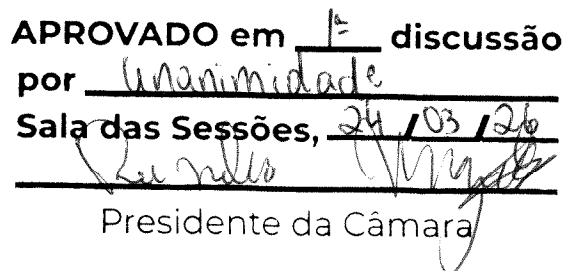 APROVADO em 1ª discussão
por Unanimidade
Sala das Sessões, 24/03/26
Presidente da Câmara